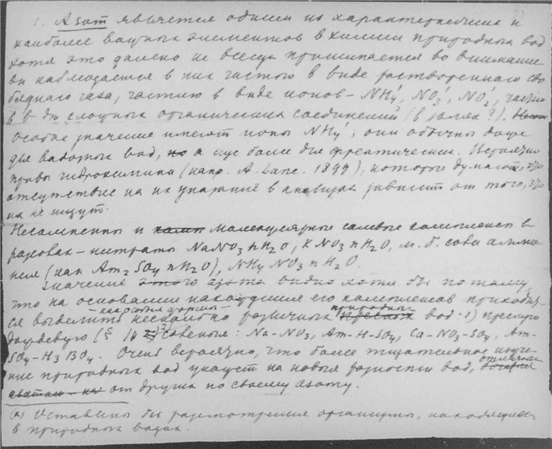 1. Азот является одним из характернейших и
наиболее важных элементов в химии природных вод
хотя это далеко не всегда принимается во внимание.
Он наблюдается в них частью в виде растворенного сво
бодного газа, частью в виде ионов - NH₄', NO₃', NO₂', частью
в в-де сложных органических соединений (в золях?).
Особое значение имеют ионы NH₄'; они обычны даже
для вод, но а еще более для фреатических.
правы гидрохимики (напр. A. Lane. 1899), которые думают, что
отсутствие на них указание в анализах зависит от того, что
их не ищут.
Несомненны и молекулярные солевые комплексы в
рассолах - нитраты NaNO₃ nH₂O, KNO₃ nH₂O, м. б. соли аммо
ния (как Am₂SO₄ nH₂O), NH₄NO₃ nH₂O.
Значение этого азота видно хотя бы потому,
что на основании нахождения его комплексов приходит
ся выделить несколько различных природных вод: 1) пресную
дождевую (§ 16) соленые: Na-NO₃, Am-H-SO₄, Ca-NO₃-SO₄, Am-
SO₄-H₃BO₃. Очень вероятно, что более тщательное изуче
ние природных вод укажет на новые разности вод,
от других по своему азоту.
(*) Оставлены без рассмотрения организмы, находящиеся
в природных водах.